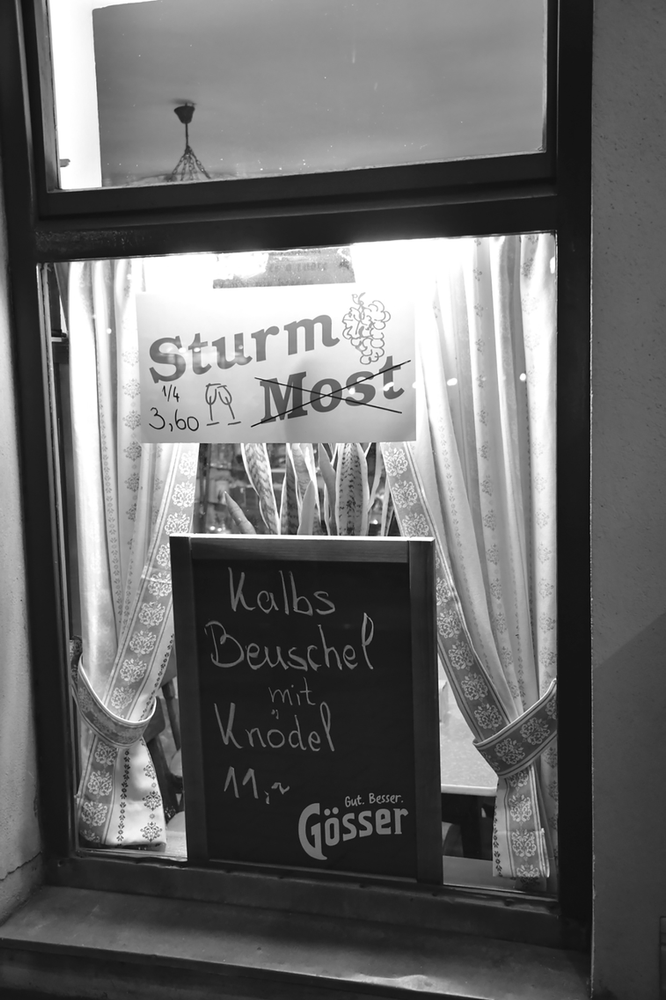 Sturm
1/4
3,60
Most
Kalbs
Beuschel
mit
Knödel
11,~
Gut. Besser.
Gösser